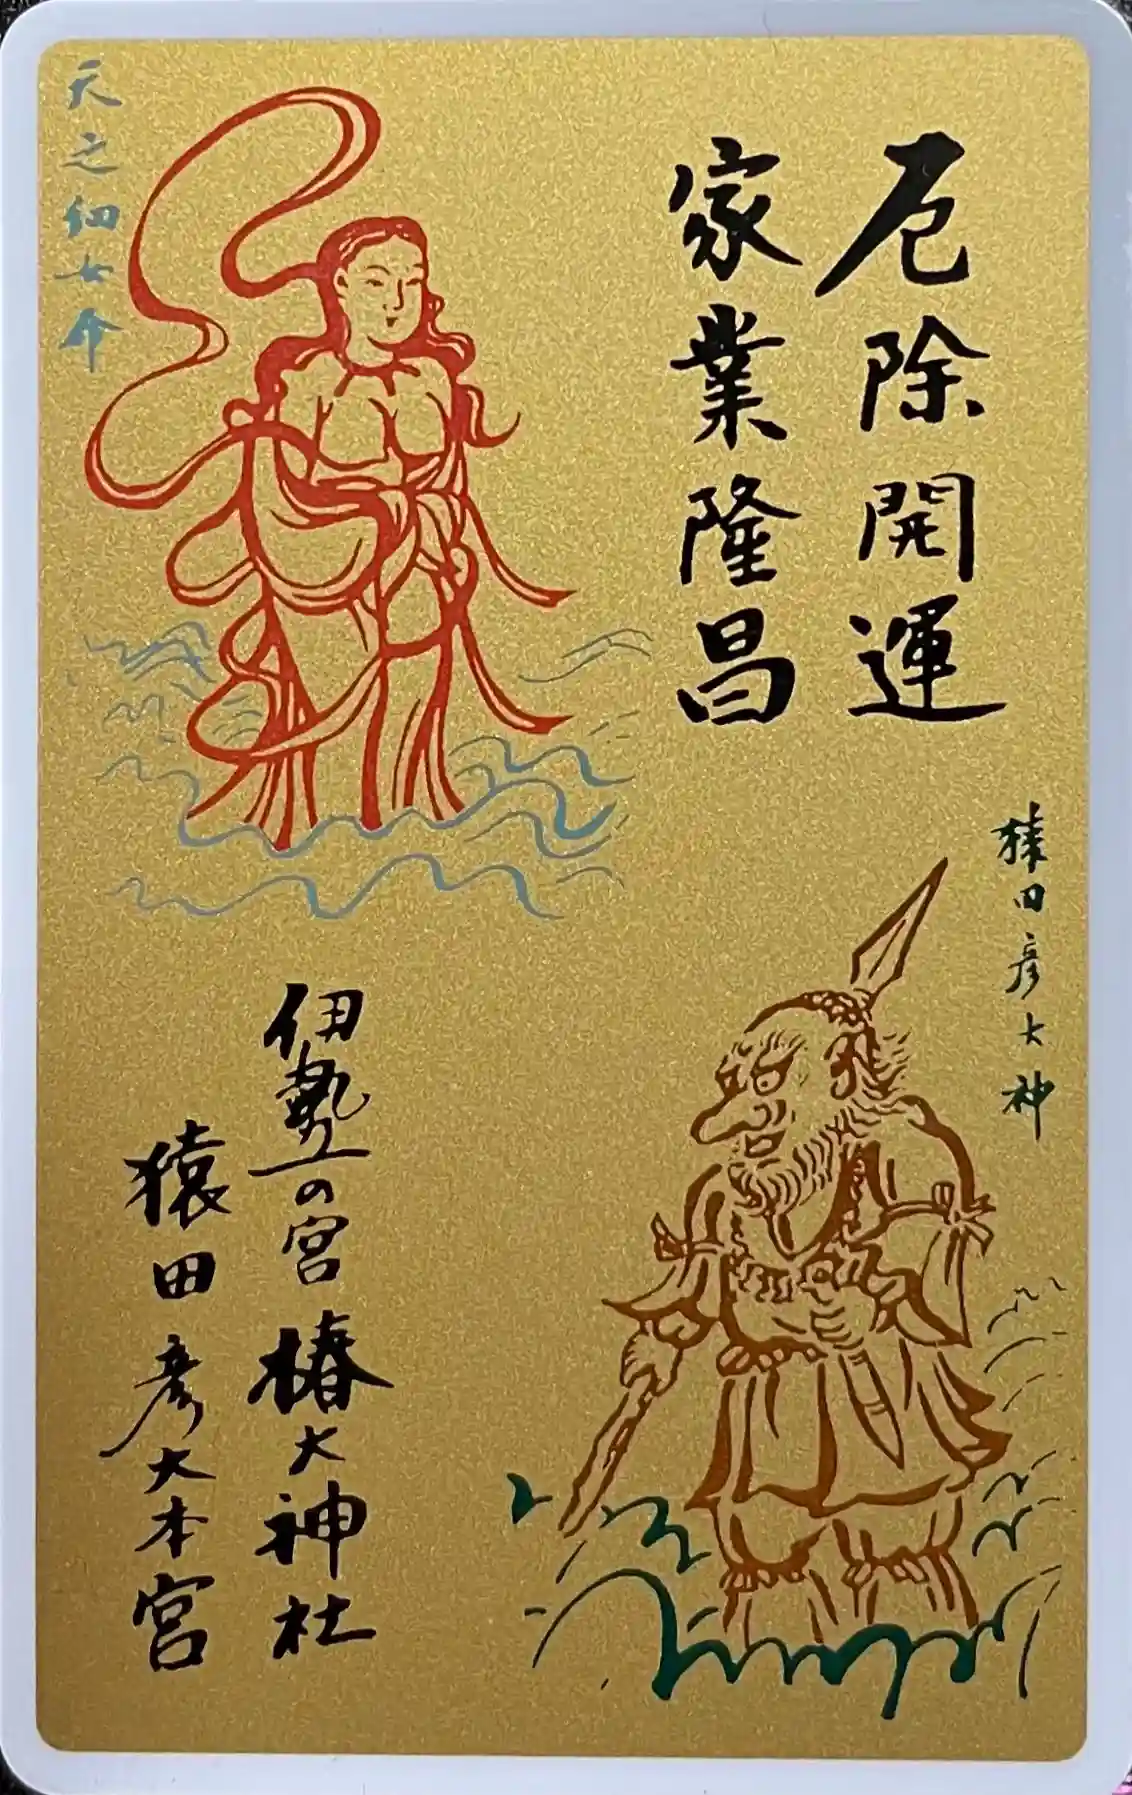 厄除開運
家業隆昌
天之細女命
猿田彦大神
伊勢の宮椿大神社
猿田彦大本宮